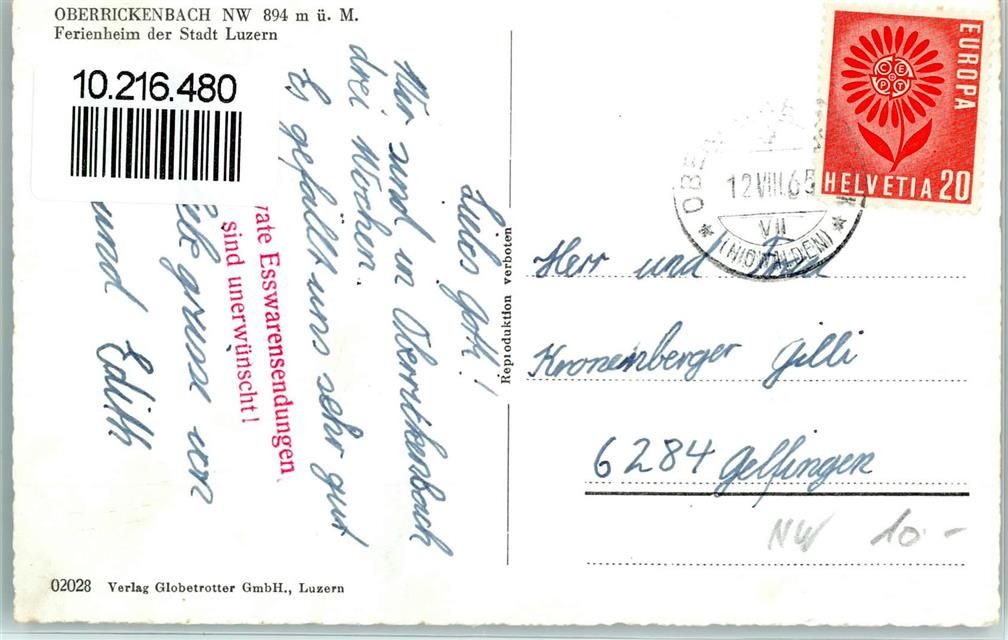 OBERRICKENBACH NW 894 m ü. M.
Ferienheim der Stadt Luzern
10.216.480
Liebs Gotti!
Wir sind in Oberrickenbach
drei Wochen.
Es gefällt uns sehr gut
grüsse von
und Edith
rate Esswarensendungen
sind unerwünscht!
02028 Verlag Globetrotter GmbH., Luzern
Reproduktion verboten
EUROPA
CEPT
HELVETIA 20
12.VIII.65
VII
(NIDWALDEN)
Herr und Frau
Kronenberger Gilli
6284 Gelfingen
NW 10.-